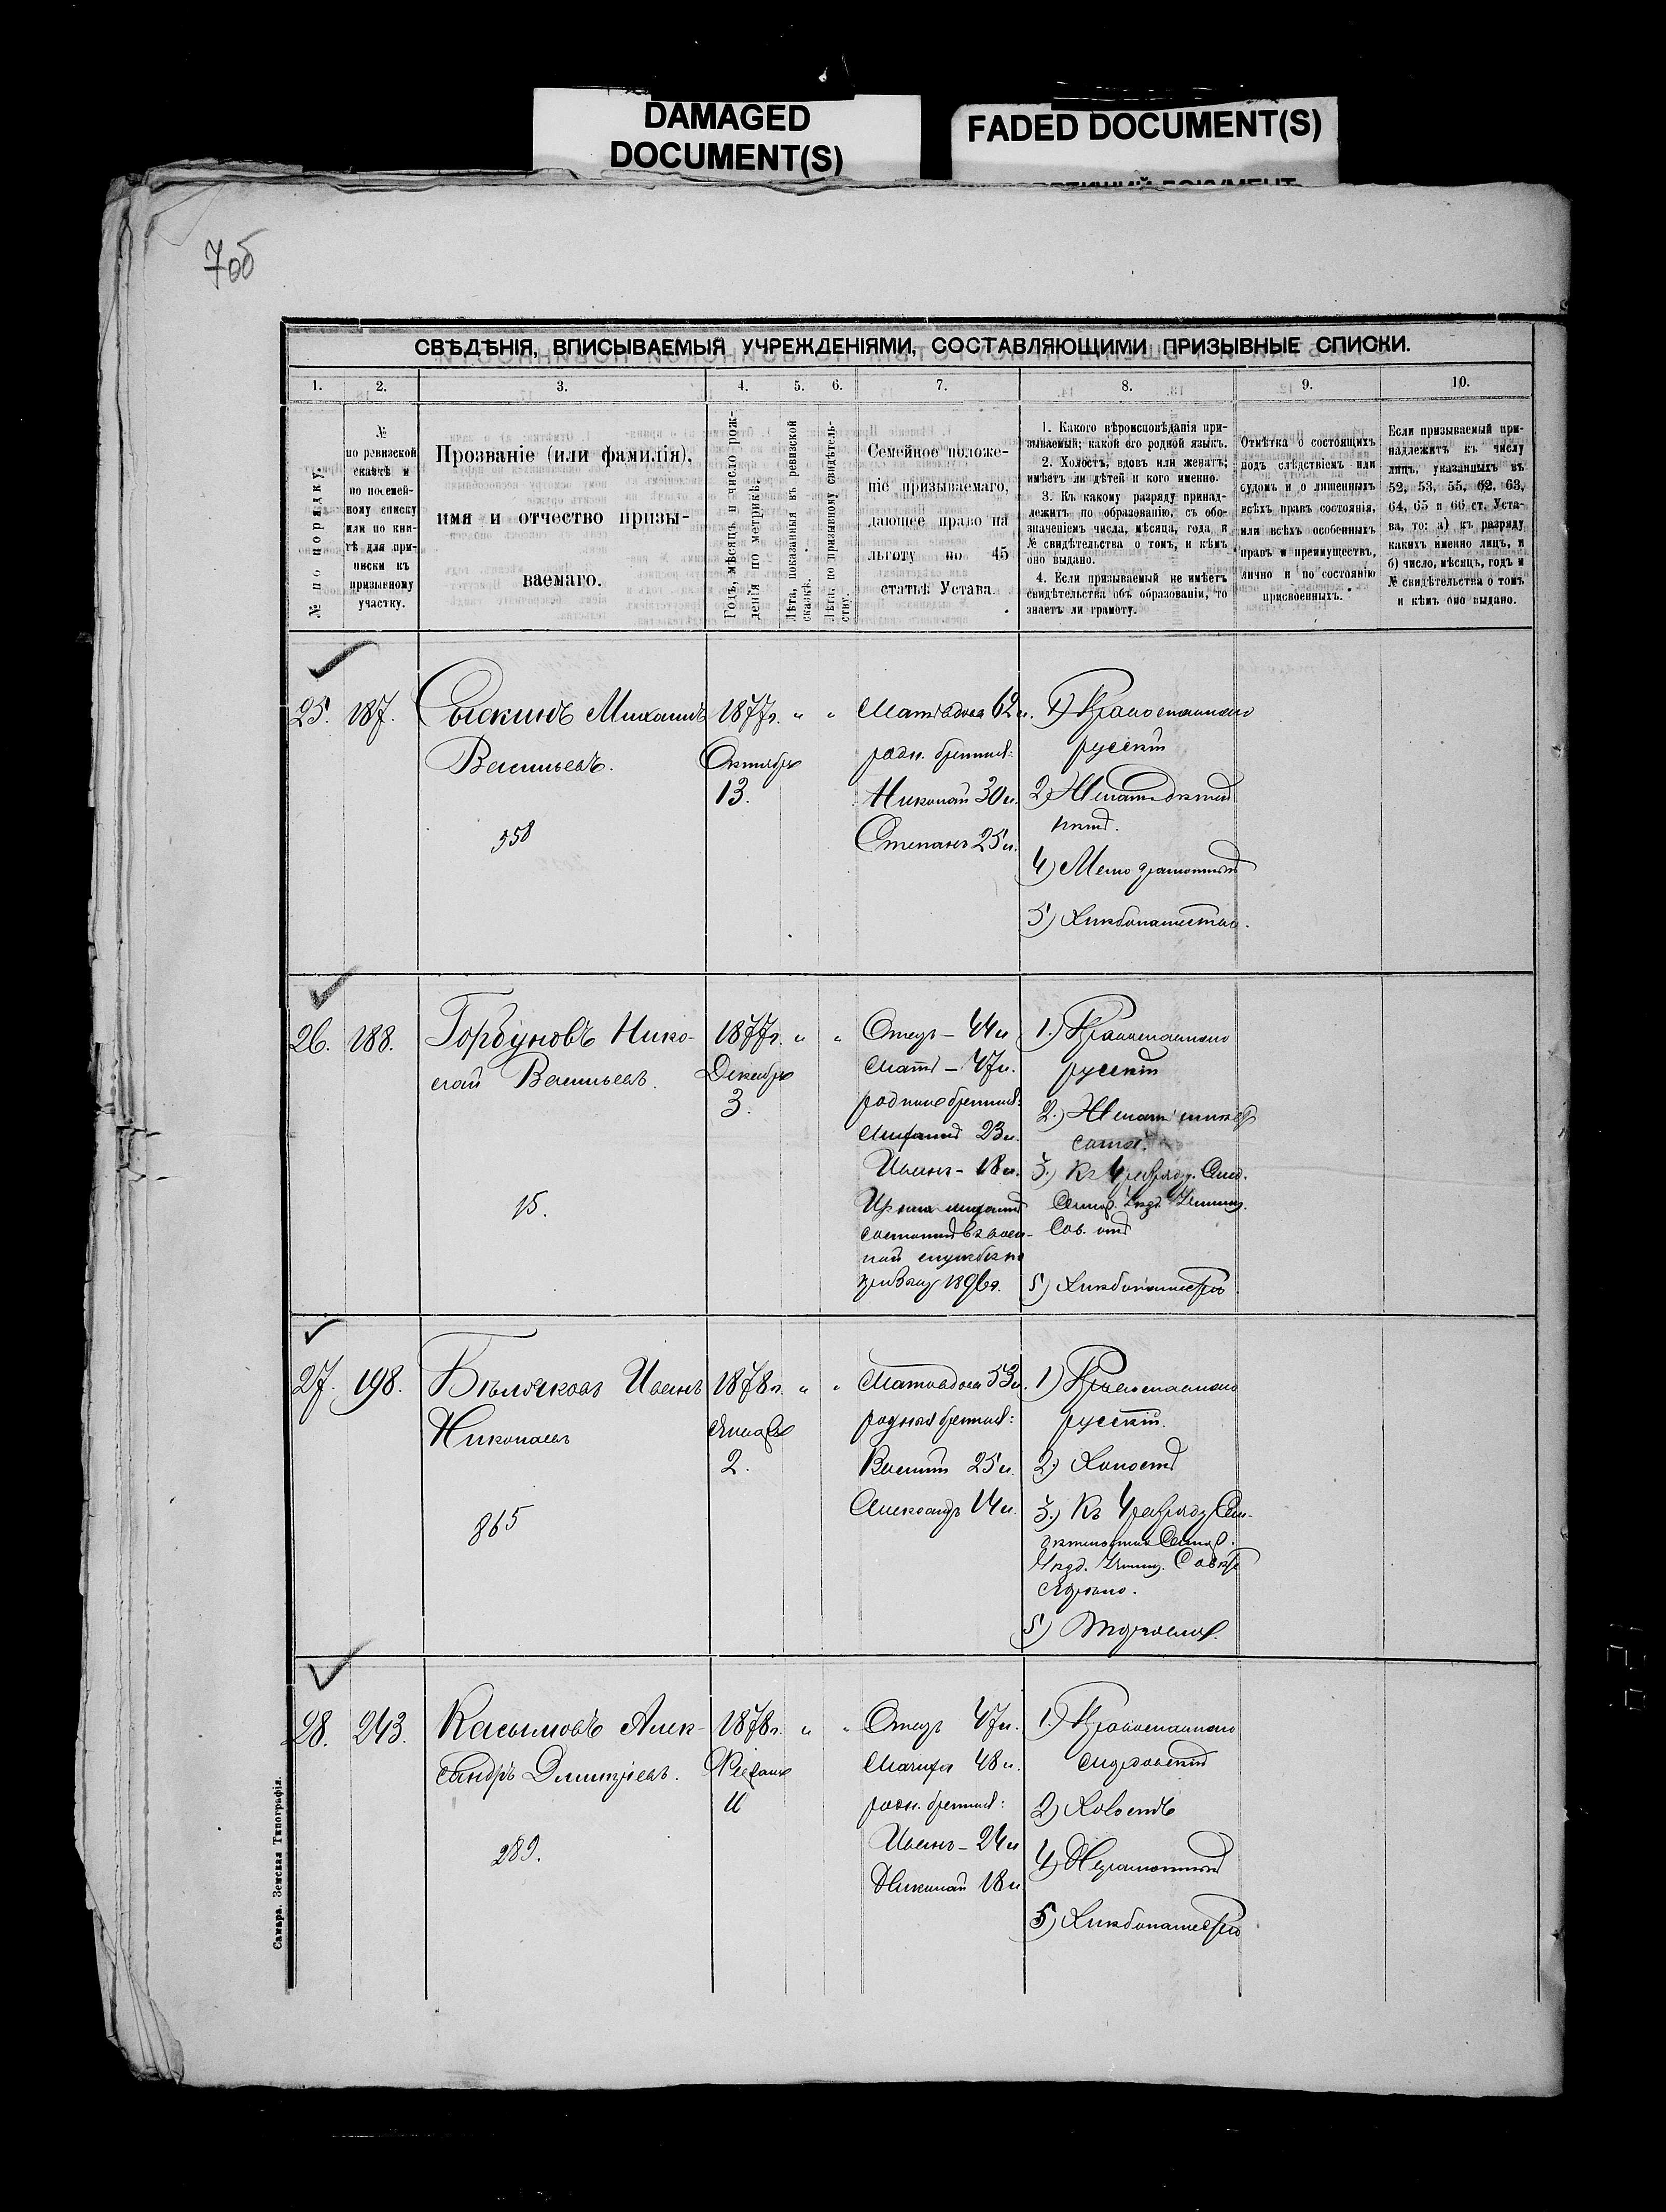 DAMAGED
DOCUMENT(S)
FADED DOCUMENT(S)
7об
СВѢДѢНІЯ, ВПИСЫВАЕМЫЯ УЧРЕЖДЕНІЯМИ, СОСТАВЛЯЮЩИМИ ПРИЗЫВНЫЕ СПИСКИ.
1. 2. 3. 4. 5. 6. 7. 8. 9. 10.
№ по порядку.
№
по ревизской
сказкѣ и
по посемей-
ному списку
или по кни-
гѣ для при-
писки къ
призывному
участку.
Прозваніе (или фамилія),
имя и отчество призы-
ваемаго.
Годъ, мѣсяцъ и число рож-
денія по метрикѣ.
Лѣта, показанныя въ ревизской
сказкѣ.
Лѣта, по призывному свидѣтель-
ству.
Семейное положе-
ніе призываемаго,
дающее право на
льготу по 45
статьѣ Устава.
1. Какого вѣроисповѣданія при-
зываемый; какой его родной языкъ.
2. Холостъ, вдовъ или женатъ;
имѣетъ ли дѣтей и кого именно.
3. Къ какому разряду принад-
лежитъ по образованію, съ обо-
значеніемъ числа, мѣсяца, года и
№ свидѣтельства о томъ, и кѣмъ
оно выдано.
4. Если призываемый не имѣетъ
свидѣтельства объ образованіи, то
знаетъ ли грамоту.
Отмѣтка о состоящихъ
подъ слѣдствіемъ или
судомъ и о лишенныхъ
всѣхъ правъ состоянія,
или всѣхъ особенныхъ
правъ и преимуществъ,
лично и по состоянію
присвоенныхъ.
Если призываемый при-
надлежитъ къ числу
лицъ, указанныхъ въ
52, 53, 55, 62, 63,
64, 65 и 66 ст. Уста-
ва, то: а) къ разряду
какихъ именно лицъ, и
б) число, мѣсяцъ, годъ и
№ свидѣтельства о томъ
и кѣмъ оно выдано.
25. 187. Сыскинъ Михаилъ
Васильевъ.
358
1877г. " "
Октября
13.
Мать вдова 62 л.
родн. братья:
Николай 30 л.
Степанъ 25 л.
1) Православнаго
русскій
2) Женатъ дѣтей
нѣтъ.
4) Мало грамотный
5) Хлѣбопашество.
26. 188. Горбуновъ Нико-
лай Васильевъ.
15.
1877г. " "
Декабря
3.
Отецъ – 44 л
Мать – 47 л.
родные братья:
23 л.
Иванъ – 18 л.
состоитъ въ воен-
ной службѣ по
призыву 1896 г.
1.) Православнаго
русскій
2.) Женатъ
3.) Къ 4 разряду.
5) Хлѣбопашество
27. 198. Бѣляковъ Иванъ
Николаевъ
865
1878г. " "
Января
2.
Мать вдова 53 л.
родные братья:
Василій 25 л.
Александръ 14 л.
1) Православнаго
русскій.
2) Холостъ
3.) Къ 4 разряду
5)
28. 243. Касымовъ Алек-
сандръ Дмитріевъ.
289.
1878г. " "
Февраля
11
Отецъ 47 л.
Мачиха 48 л.
родн. братья:
Иванъ – 24 л
Николай 18 л
1.) Православнаго
мордовскій
2) Холостъ
4) Неграмотный
5) Хлѣбопашество
Самара. Земская Типографія.